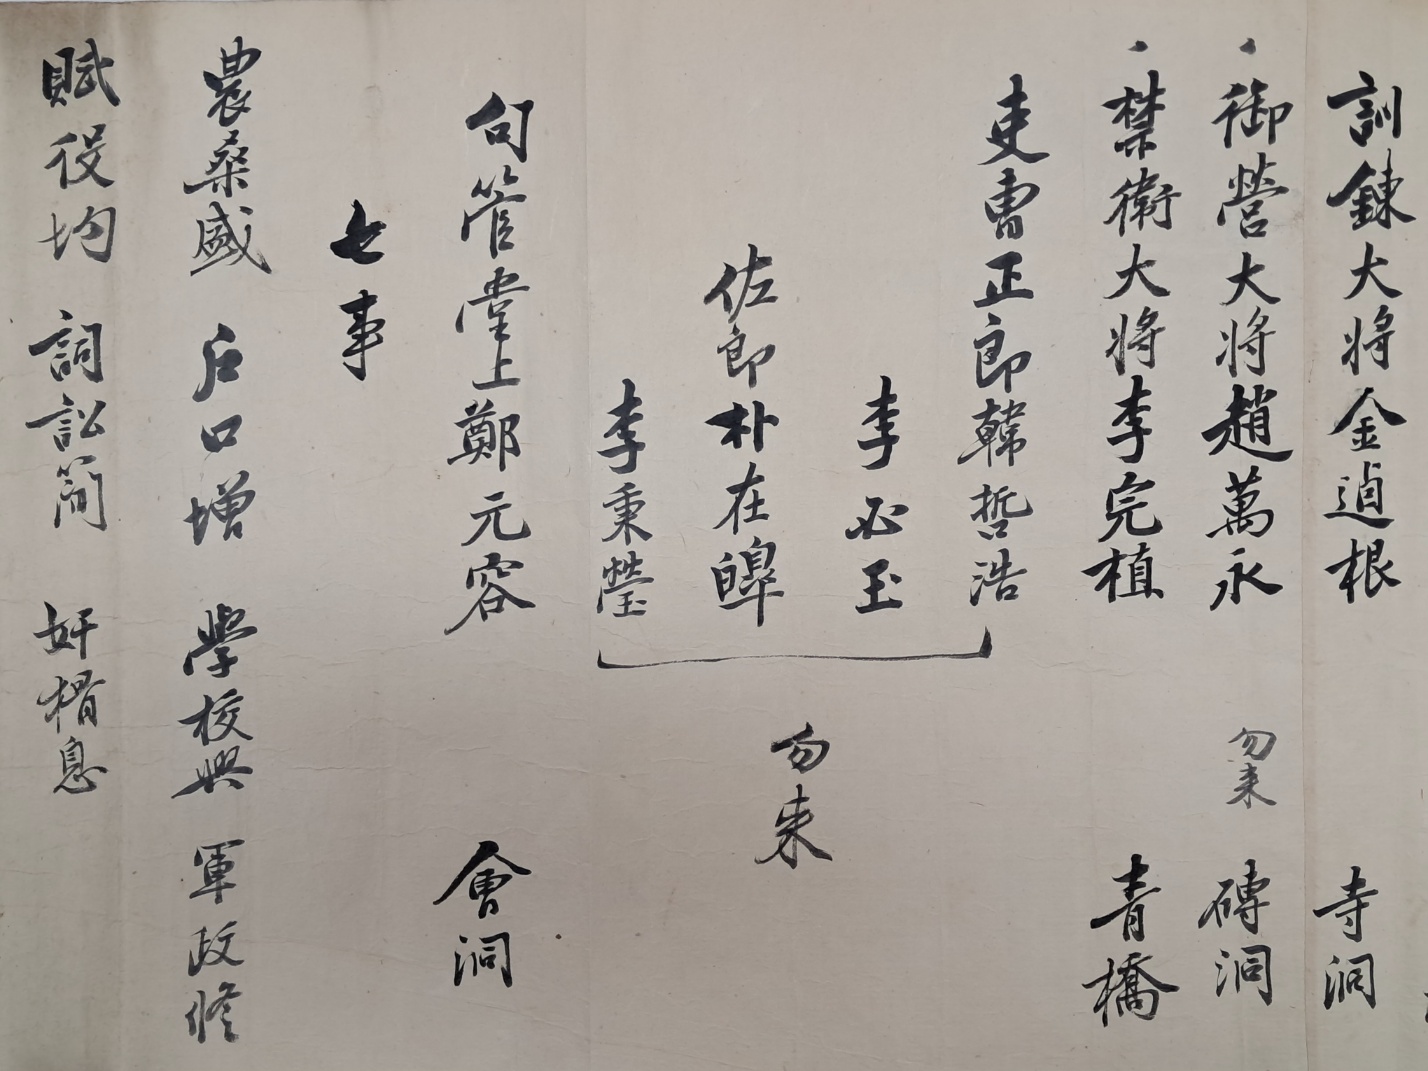 訓鍊大将金逌根 寺洞
御營大将趙萬永 勿来 磚洞
禁衛大将李完植 青橋
吏曺正郎韓哲浩
李必玉
佐郎朴在皞
李秉瑩
勿来
句管堂上鄭元容 會洞
七事
農桑盛 戶口增 學校興 軍政修
賦役均 詞訟簡 奸猾息